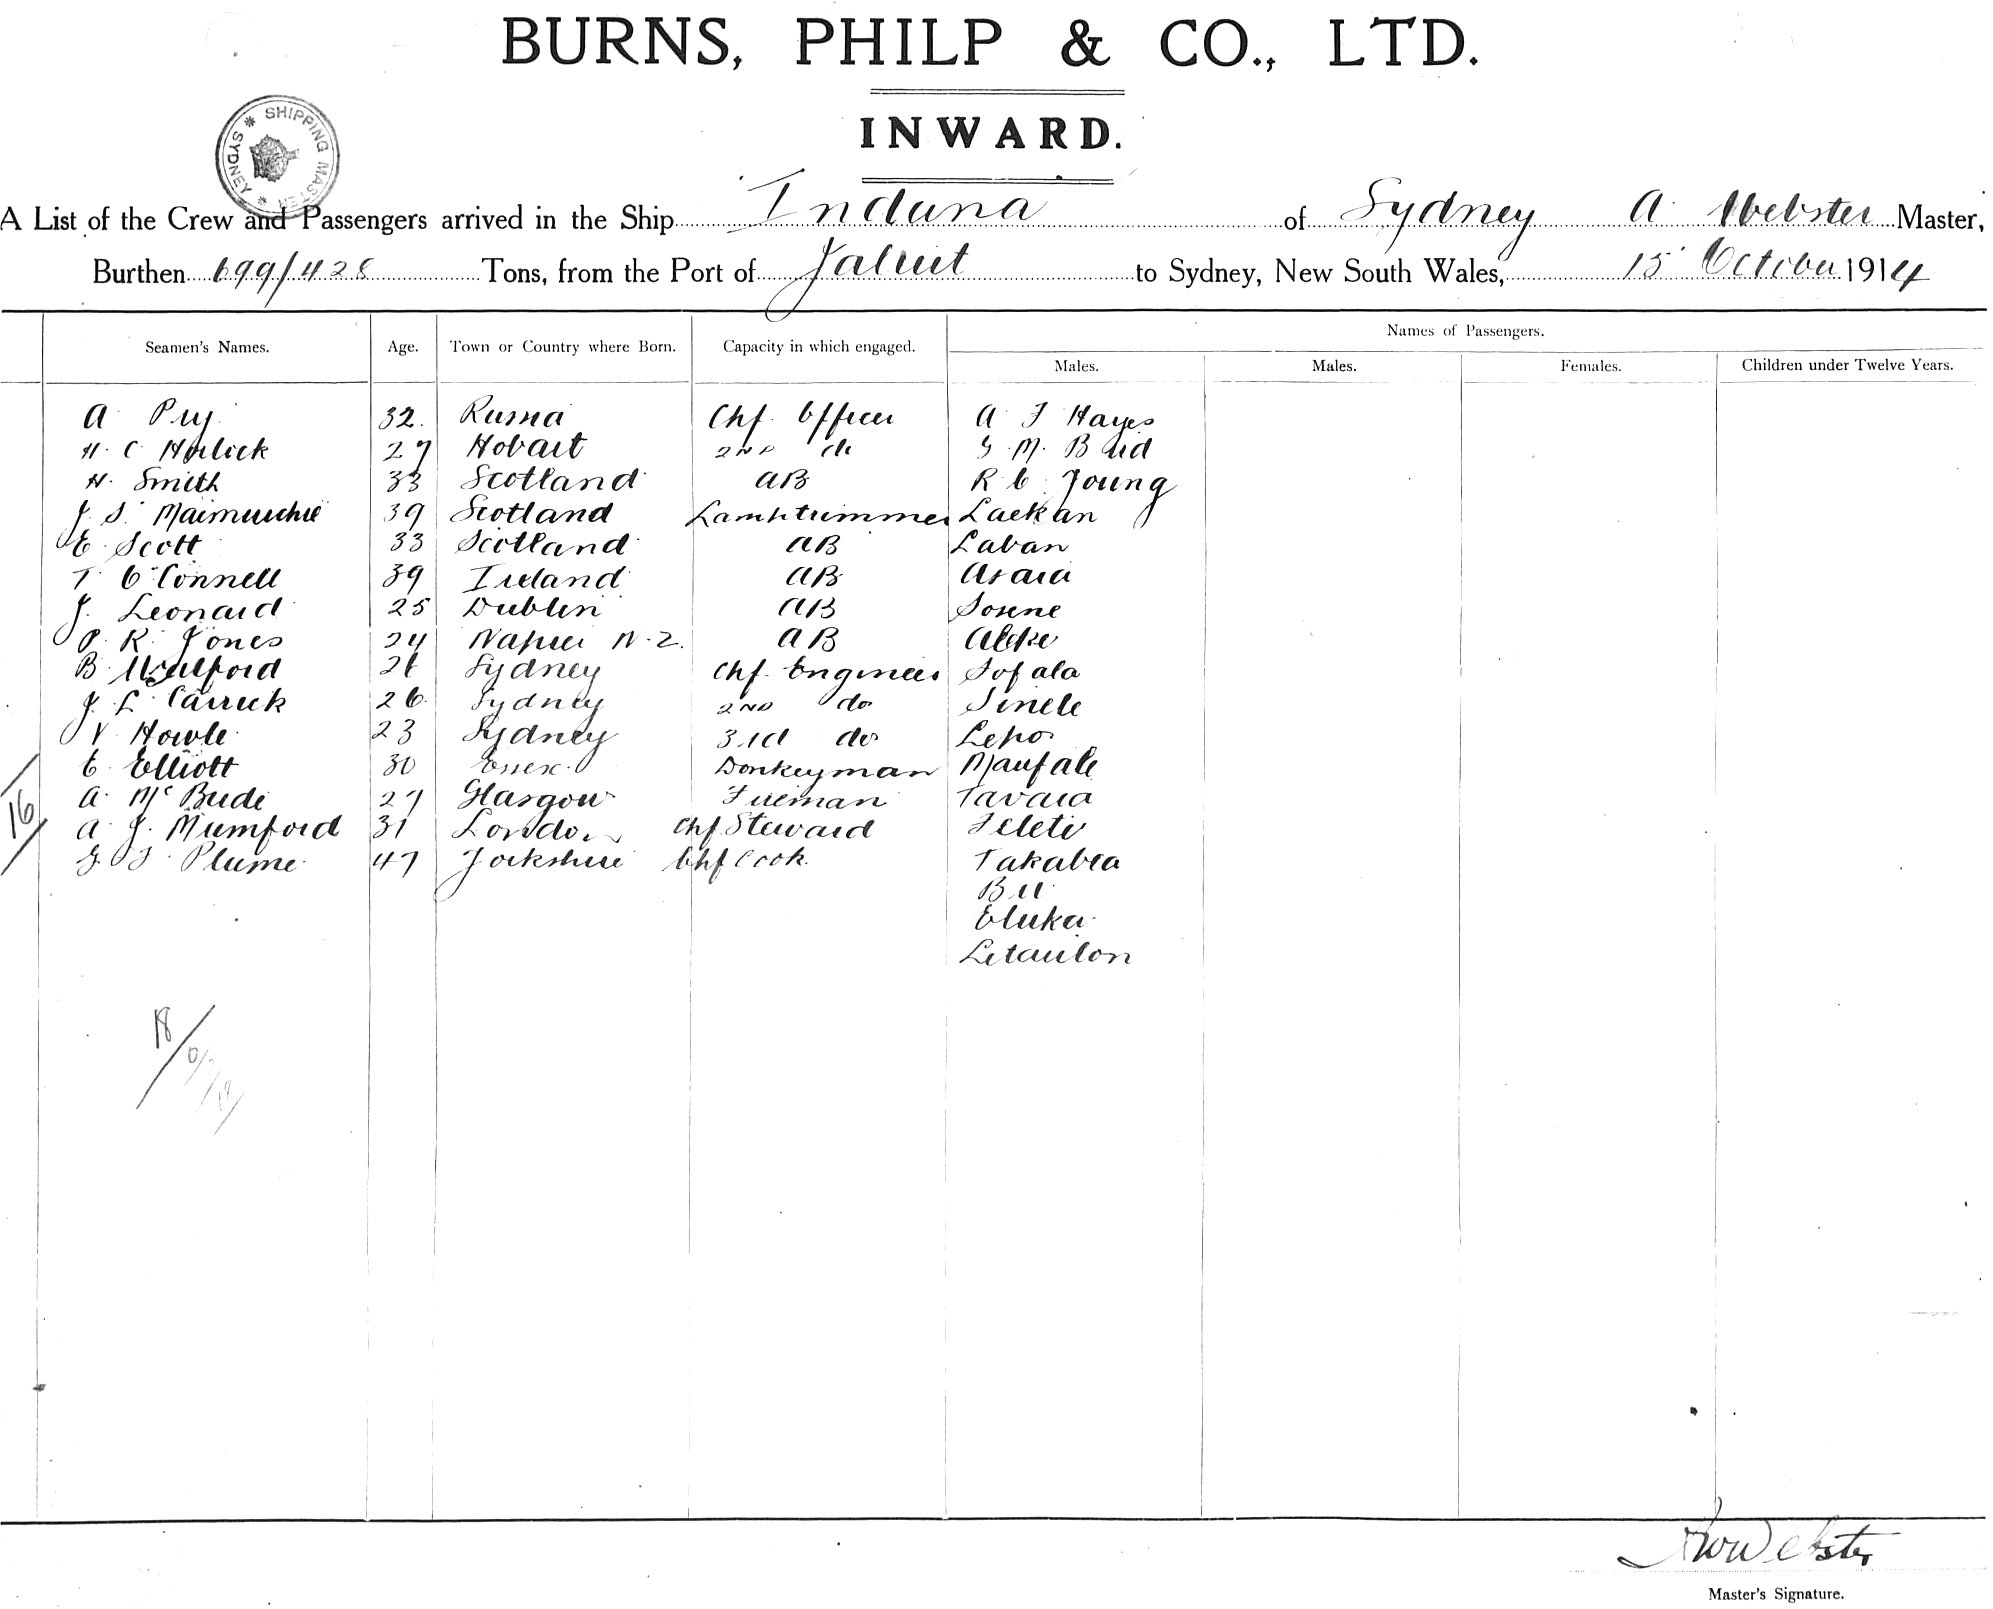 BURNS, PHILP & CO., LTD.
INWARD.
SHIPPING MASTER * SYDNEY *
A List of the Crew and Passengers arrived in the Ship Induna of Sydney A Webster Master,
Burthen 699/428 Tons, from the Port of Jaluit to Sydney, New South Wales, 15 October 1914
Seamen's Names. Age. Town or Country where Born. Capacity in which engaged. Names of Passengers.
Males. Males. Females. Children under Twelve Years.
A 32. Chf Officer A J Hayes
H. C Horlick 27 Hobart 2ND do G. M. Baird
H. Smith 33 Scotland AB R C Young
J. S. 39 Scotland Lamptrimmer Laekan
E Scott 33 Scotland AB Laban
T O'Connell 39 Ireland AB Asaia
J. Leonard 25 Dublin AB Sosene
P. R. Jones 24 Napier N.Z. AB
B Walford 26 Sydney Chf. Engineer Sofala
J. L Carrick 26 Sydney 2ND do Sinele
V Howle 23 Sydney 3rd do Lepo
E. Elliott 30 Essex. Donkeyman Maufale
16
A. McBride 27 Glasgow Fireman Tavaia
A. J. Mumford 31 London Chf Steward Feleti
G J Plume 47 Yorkshire Chf Cook. Takabea
Eluka
Letaulon
18
A W Webster
Master's Signature.